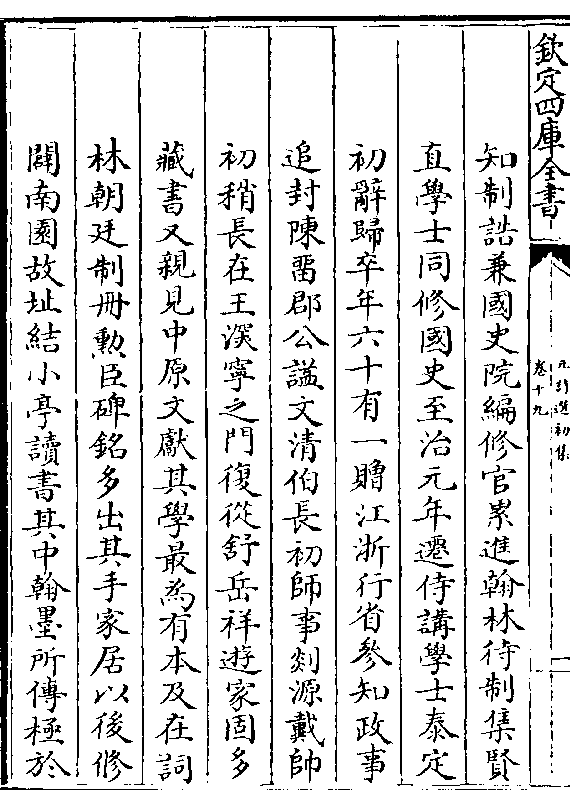 欽定四庫全書
元詩選初集
卷十九
知制誥兼國史院編修官累進翰林待制集賢
直學士同修國史至治元年遷侍講學士泰定
初辭歸卒年六十有一贈江浙行省參知政事
追封陳留郡公謚文清伯長初師事剡源戴帥
初稍長在王深寧之門復從舒岳祥遊家固多
藏書又親見中原文獻其學最為有本及在詞
林朝廷制冊勲臣碑銘多出其手家居以後修
闢南園故址結小亭讀書其中翰墨所傳極於